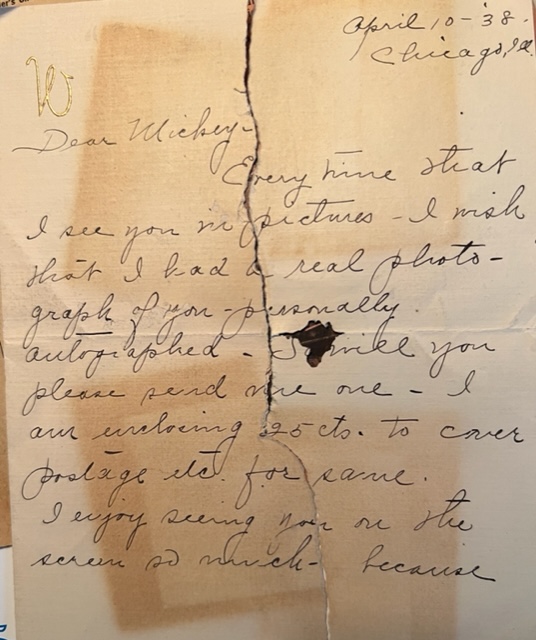 April 10-'38.
Chicago, Ill.
W
Dear Mickey-
Every time that
I see you in pictures - I wish
that I had a real photo-
graph of you - personally
autographed - So will you
please send me one - I
am enclosing 25cts. to cover
postage etc. for same.
I enjoy seeing you on the
screen so much - because